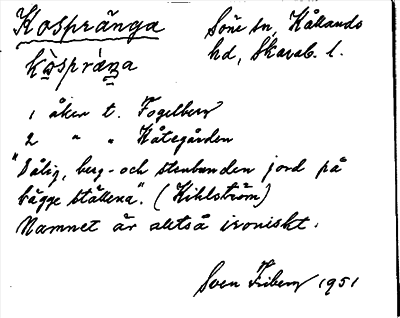 Kospränga Söne sn, Kållands
hd, Skarab. l.
kòspräŋa
1 åker t. Fogelberg
2 " " Kåtegården
"Dålig, berg- och stenbunden jord på
bägge ställena". (Kihlström)
Namnet är alltså ironiskt.
Sven Friberg 1951